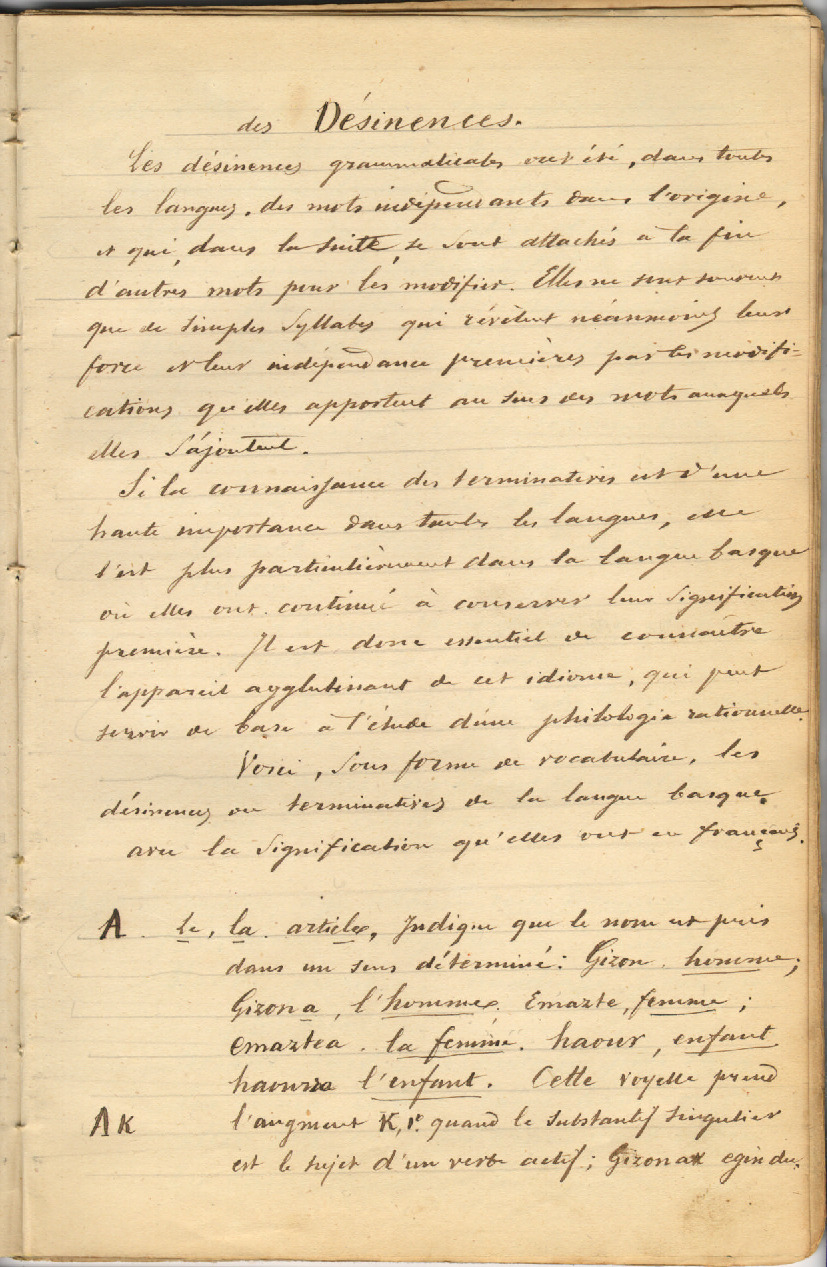 des Désinences.
Les désinences grammaticales ont été, dans toutes
les langues, des mots indépendants dans l'origine,
et qui, dans la suite, se sont attachés à la fin
d'autres mots pour les modifier. Elles ne sont souvent
que de simples syllabes qui révèlent néanmoins leur
force et leur indépendance premières par les modifi=
cations qu'elles apportent au sens des mots auxquels
elles s'ajoutent.
Si la connaissance des terminatives est d'une
haute importance dans toutes les langues, elle
l'est plus particulièrement dans la langue basque
où elles ont continué à conserver leur signification
première. Il est donc essentiel de connaître
l'appareil agglutinant de cet idiome, qui peut
servir de base à l'étude d'une philologie rationnelle.
Voici, sous forme de vocabulaire, les
désinences ou terminatives de la langue basque
avec la signification qu'elles ont en français.
A. Le, la article, Indique que le nom est pris
dans un sens déterminé: Gizon. homme;
Gizona, l'homme. Emazte, femme;
emaztea. la femme. haour, enfant
haourra l'enfant. Cette voyelle prend
AK l'augment K, 1º quand le substantif singulier
est le sujet d'un verbe actif; Gizonak egin du.